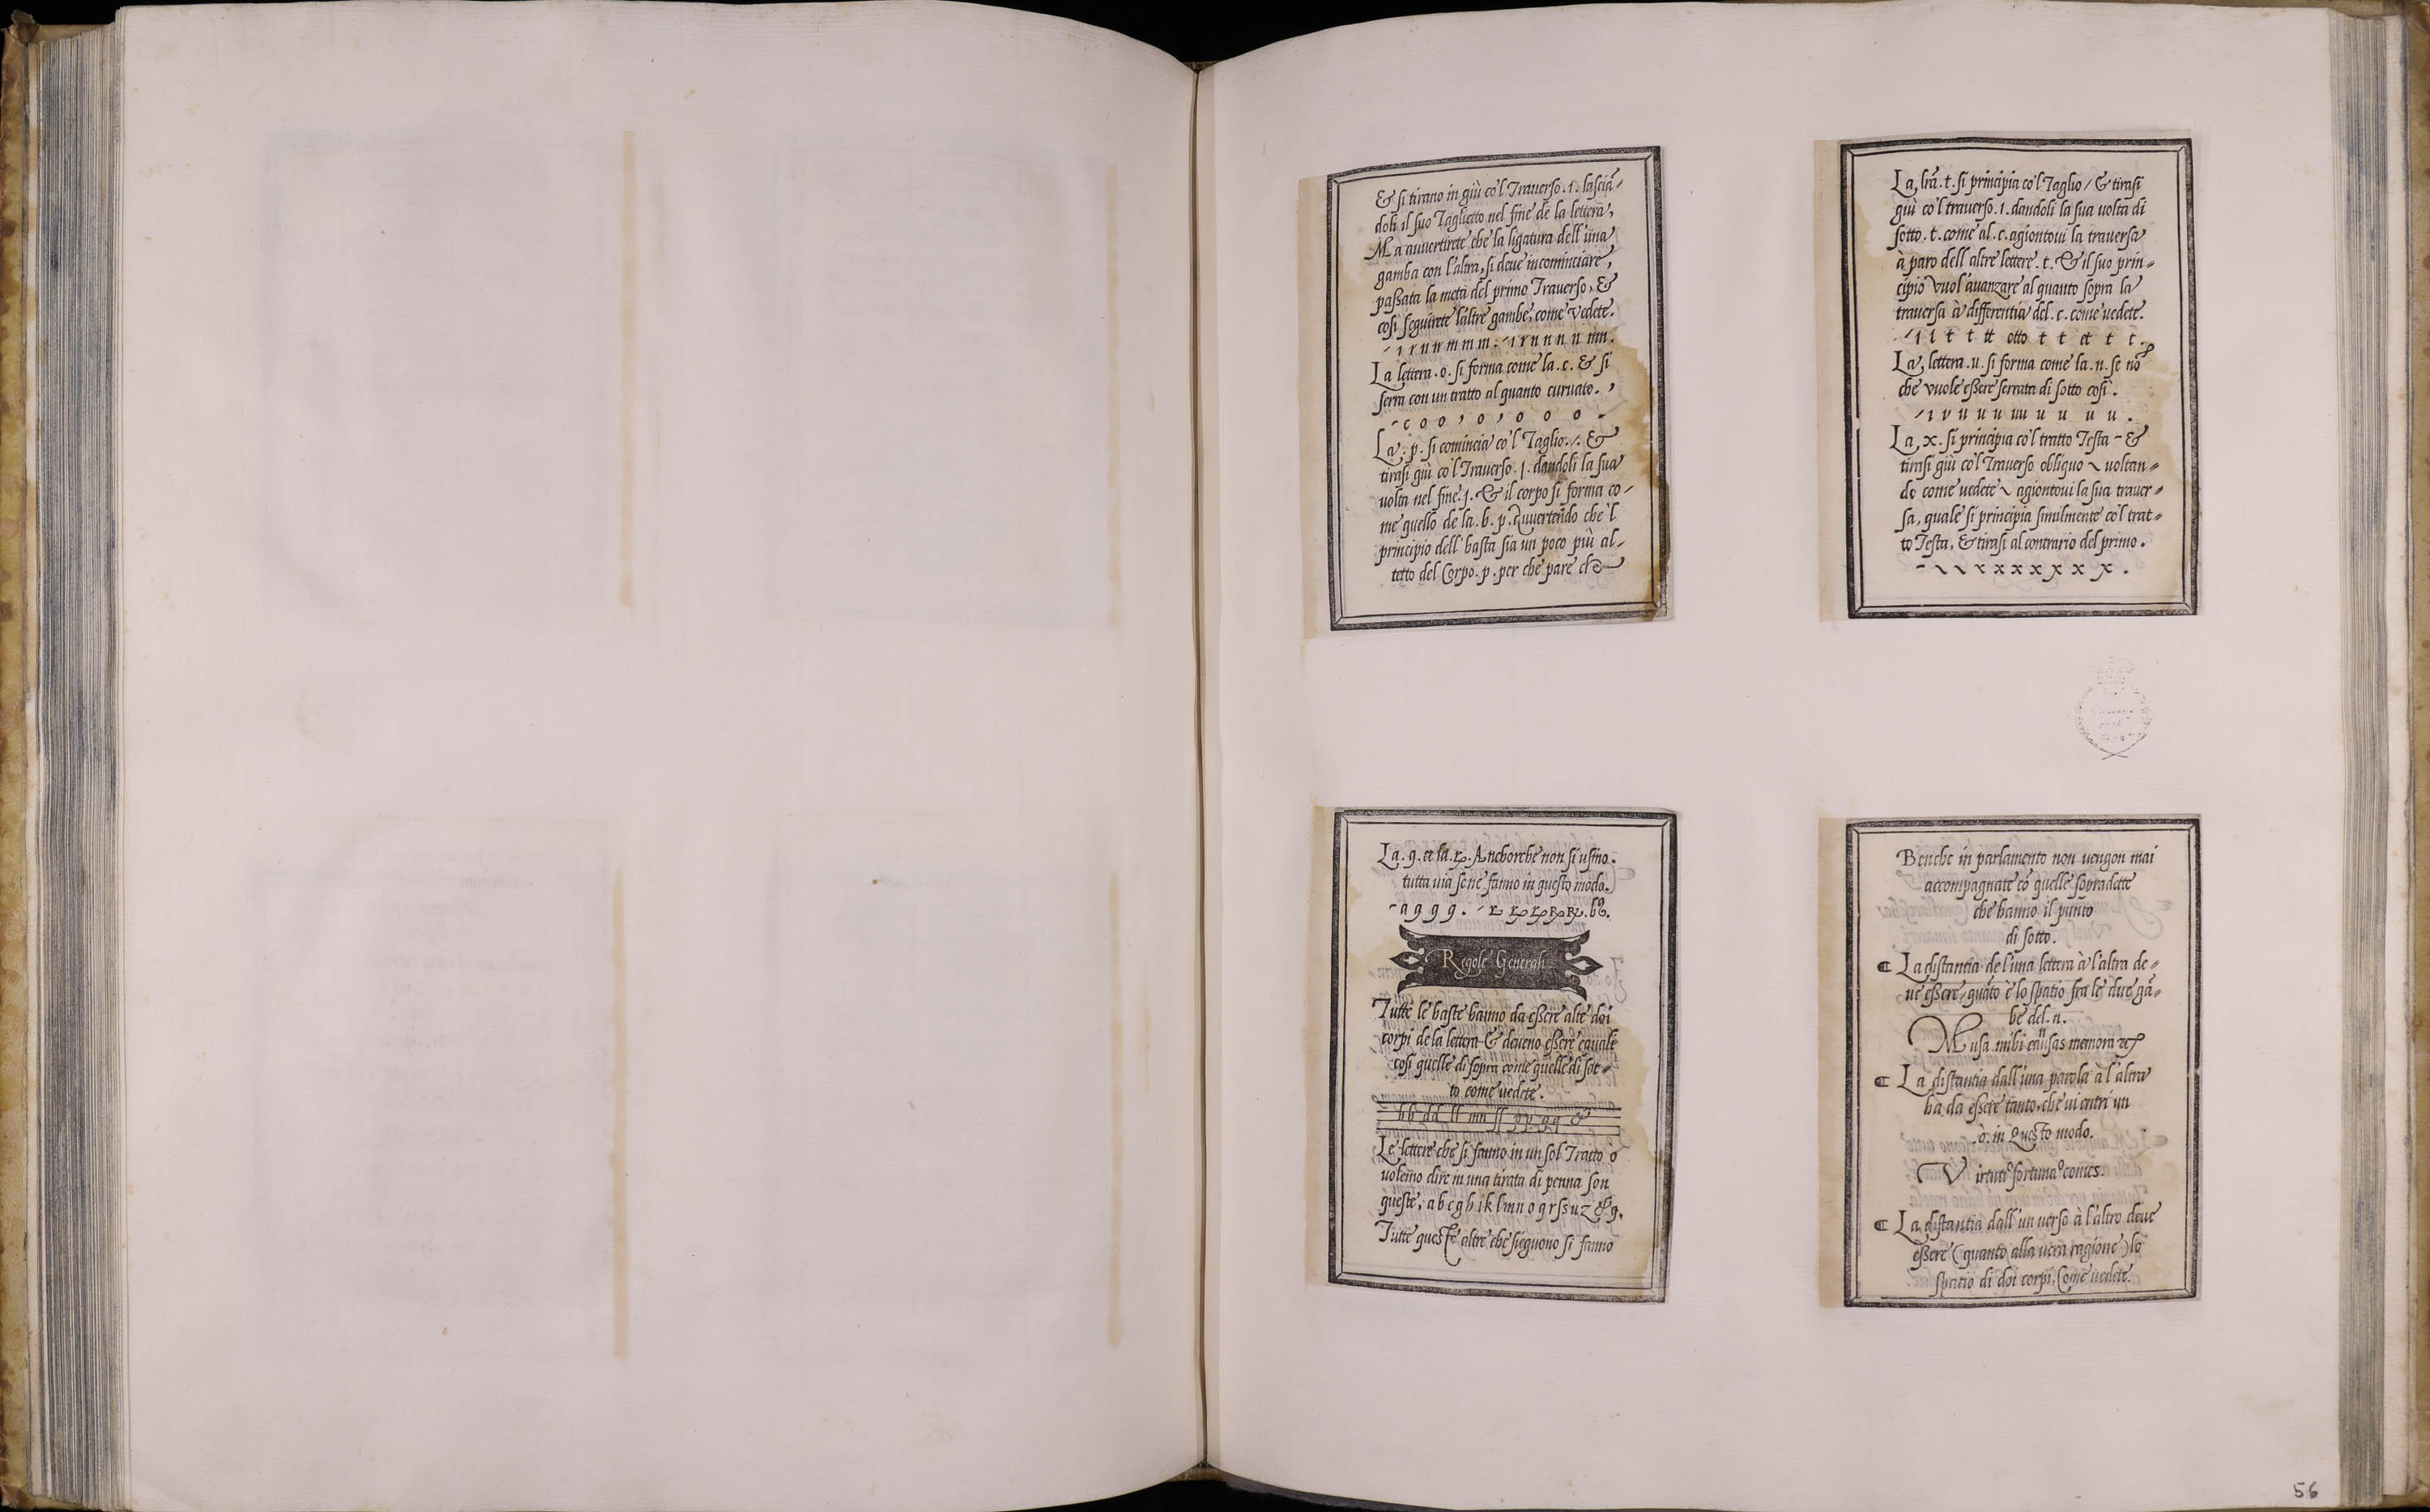 & si tirano in giù co'l Trauerso .1. lasciā-
doli il suo Taglietto nel fine de la lettera,
Ma auuertirete che la ligatura dell'una
gamba con l'altra, si deue incominciare,
passata la metà del primo Trauerso, &
così seguirete l'altre gambe, come vedete.
La lettera .o. si forma come la .c. & si
serra con un tratto al quanto curuato. ,
- c o o , o , o o o -
La .p. si comincia co'l Taglio ./. &
tirasi giù co'l Trauerso .l. dandoli la sua
uolta nel fine .J. & il corpo si forma co-
me quello de la .b. p. Auuertendo che'l
principio dell'hasta sia un poco più al-
tetto del Corpo .p. per che pare che
La, lrā .t. si principia co'l Taglio / & tirasi
giù co'l trauerso .1. dandoli la sua uolta di
sotto .t. come al .c. agiontoui la trauersa
à paro dell'altre lettere .t. & il suo prin-
cipio vuol'auanzare al quanto sopra la
trauersa à differentia del .c. come uedete.
La, lettera .u. si forma come la .n. se nō
che vuole essere serrata di sotto così .
La, x. si principia co'l tratto Testa - &
tirasi giù co'l Trauerso obliquo \ uoltan-
do come uedete \ agiontoui la sua trauer-
sa, quale si principia similmente co'l trat-
to Testa, & tirasi al contrario del primo .
La .q. et la .ꝝ. Anchorche non si usino.
tutta uia sene fanno in questo modo.
Regole Generali
Tutte le haste hanno da essere alte doi
corpi de la lettera & deueno essere equale
così quelle di sopra come quelle di sot-
to come uedete.
hh dd ll mn ſſ pp. qq &
Le lettere che si fanno in un sol Tratto ò
uolemo dire in una tirata di penna son
queste, a b c g h i k l m n o q r ſ s u z & 9.
Tutte queste altre che sieguono si fanno
Benche in parlamento non uengon mai
accompagnate cō quelle sopradette
che hanno il punto
di sotto.
La distantia de l'una lettera à l'altra de-
ue essere, quāto è lo spatio fra le due gā-
be del .n.
Musa mihi caūsas memora
La distantia dall'una parola à l'altra
ha da essere tanto, che ui entri un
.ò. in Questo modo.
Virtutiºfortunaºcomes.
La distantia dall'un uerso à l'altro deue
essere (quanto alla uera ragione) lo
spatio di doi corpi, Come uedete.
56